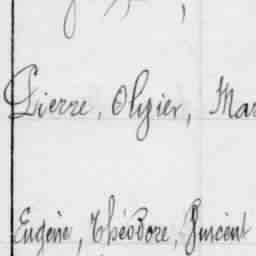 Pierre, Olivier, Mar
Eugène, Théodore, Vincent